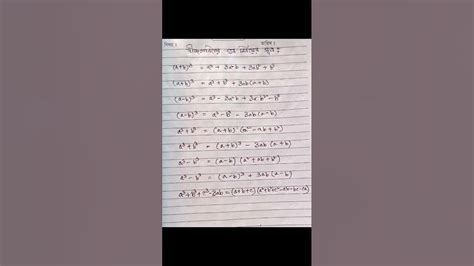 বিষয় : তারিখ :
বীজগণিতের ঘন নির্ণয়ের সূত্র :
(a+b)³ = a³ + 3a²b + 3ab² + b³
(a+b)³ = a³ + b³ + 3ab(a+b)
(a-b)³ = a³ - 3a²b + 3ab² - b³
(a-b)³ = a³ - b³ - 3ab(a-b)
a³+b³ = (a+b) (a² - ab + b²)
a³+b³ = (a+b)³ - 3ab (a+b)
a³-b³ = (a-b) (a² + ab + b²)
a³-b³ = (a-b)³ + 3ab(a-b)
a³+b³+c³-3ab = (a+b+c) (a²+b²+c²-ab-bc-ca)